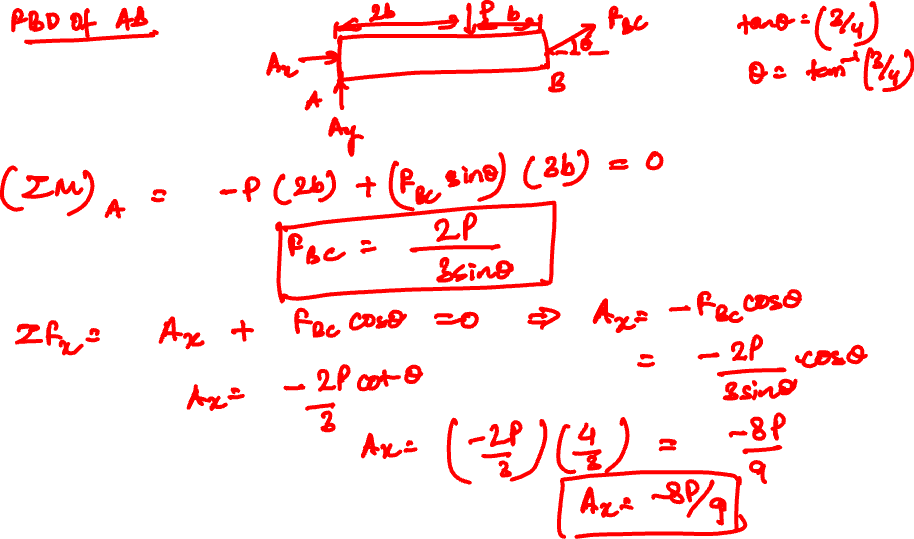 FBD of AB
2b P b F_BC
θ
A_x
A
A_y
B
tanθ = (3/4)
θ = tan⁻¹(3/4)
(ΣM)_A = -P(2b) + (F_BC sinθ)(3b) = 0
F_BC = 2P/3sinθ
ΣF_x = A_x + F_BC cosθ = 0 ⇒ A_x = -F_BC cosθ
A_x = -2P/3 cotθ = -2P/3sinθ · cosθ
A_x = (-2P/3)(4/3) = -8P/9
A_x = -8P/9